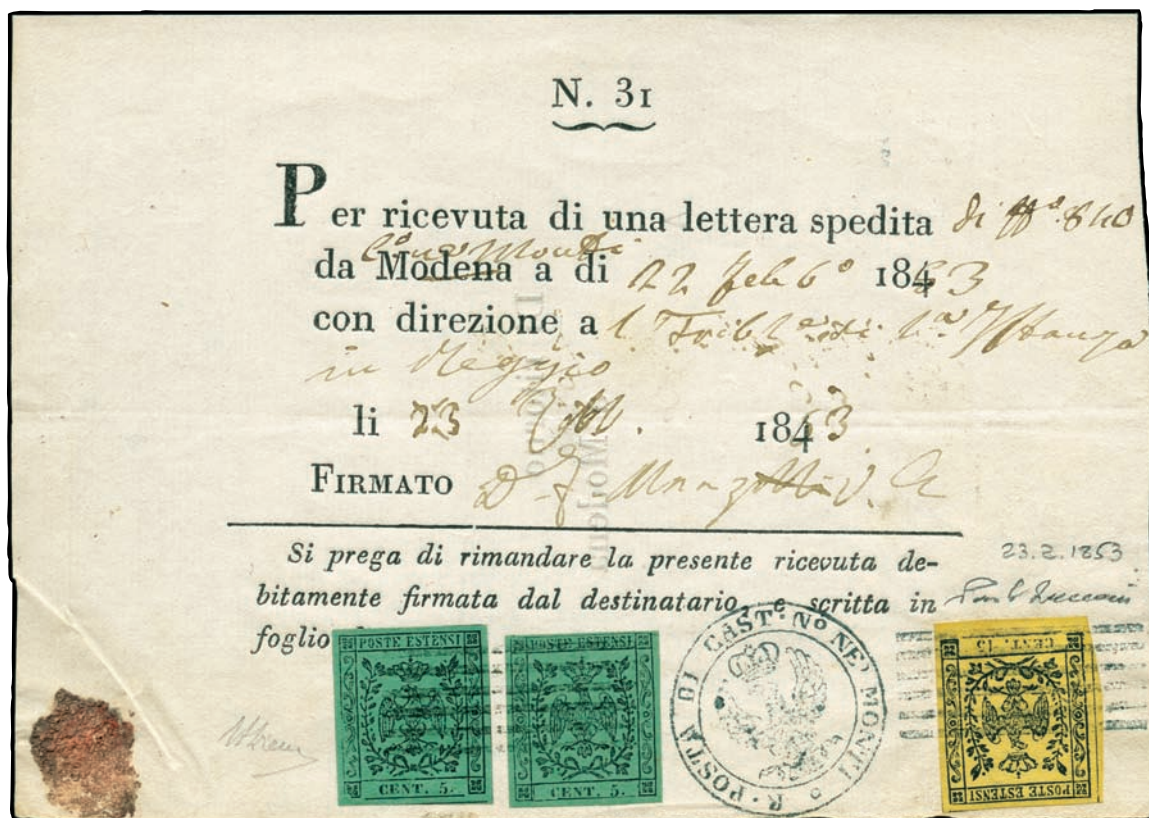 N. 31
Per ricevuta di una lettera spedita di N.º 840
da Modena a di 22 Feb 6º 1843 53
con direzione a l Trib di 1.ª Istanza
in Reggio
li 23 1843 53
FIRMATO D.
Si prega di rimandare la presente ricevuta de-
bitamente firmata dal destinatario, e scritta in
foglio
23.2.1853
POSTE ESTENSI
CENT. 5.
POSTE ESTENSI
CENT. 5.
R. POSTA DI CAST. Nº NE' MONTI
CENT. 15
POSTE ESTENSI